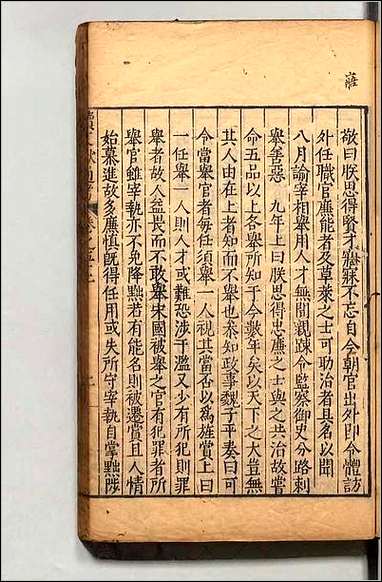 莊
敬曰朕思得賢才寤寐不忘自今朝官出外即令體訪
外任職官廉能者及草萊之士可助治者具名以聞
八月諭宰相舉用人才無間親疎令監察御史分路刺
舉善惡 九年上曰朕思得忠廉之士與之共治故嘗
命五品以上各舉所知于今數年矣以天下之大豈無
其人由在上者知而不舉也參知政事魏子平奏曰可
令當舉官者每任須舉一人視其當否以為旌賞上曰
一任舉一人則人才或難恐涉于濫又少有所犯則罪
舉者故人益畏而不敢舉宋國被舉之官有犯罪者所
舉官雖宰執亦不免降黜若有能名則被遷賞且人情
始慕進故多廉慎既得任用或失所守宰執自掌黜陟
續文獻通考 卷之五十